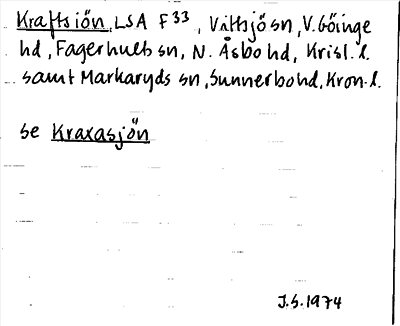 Kraftsjön, LSA F 33, Vittsjö sn, V. Göinge
hd, Fagerhults sn, N. Åsbo hd, Krist. l.
samt Markaryds sn, Sunnerbo hd, Kron. l.
se Kraxasjön
J.S. 1974